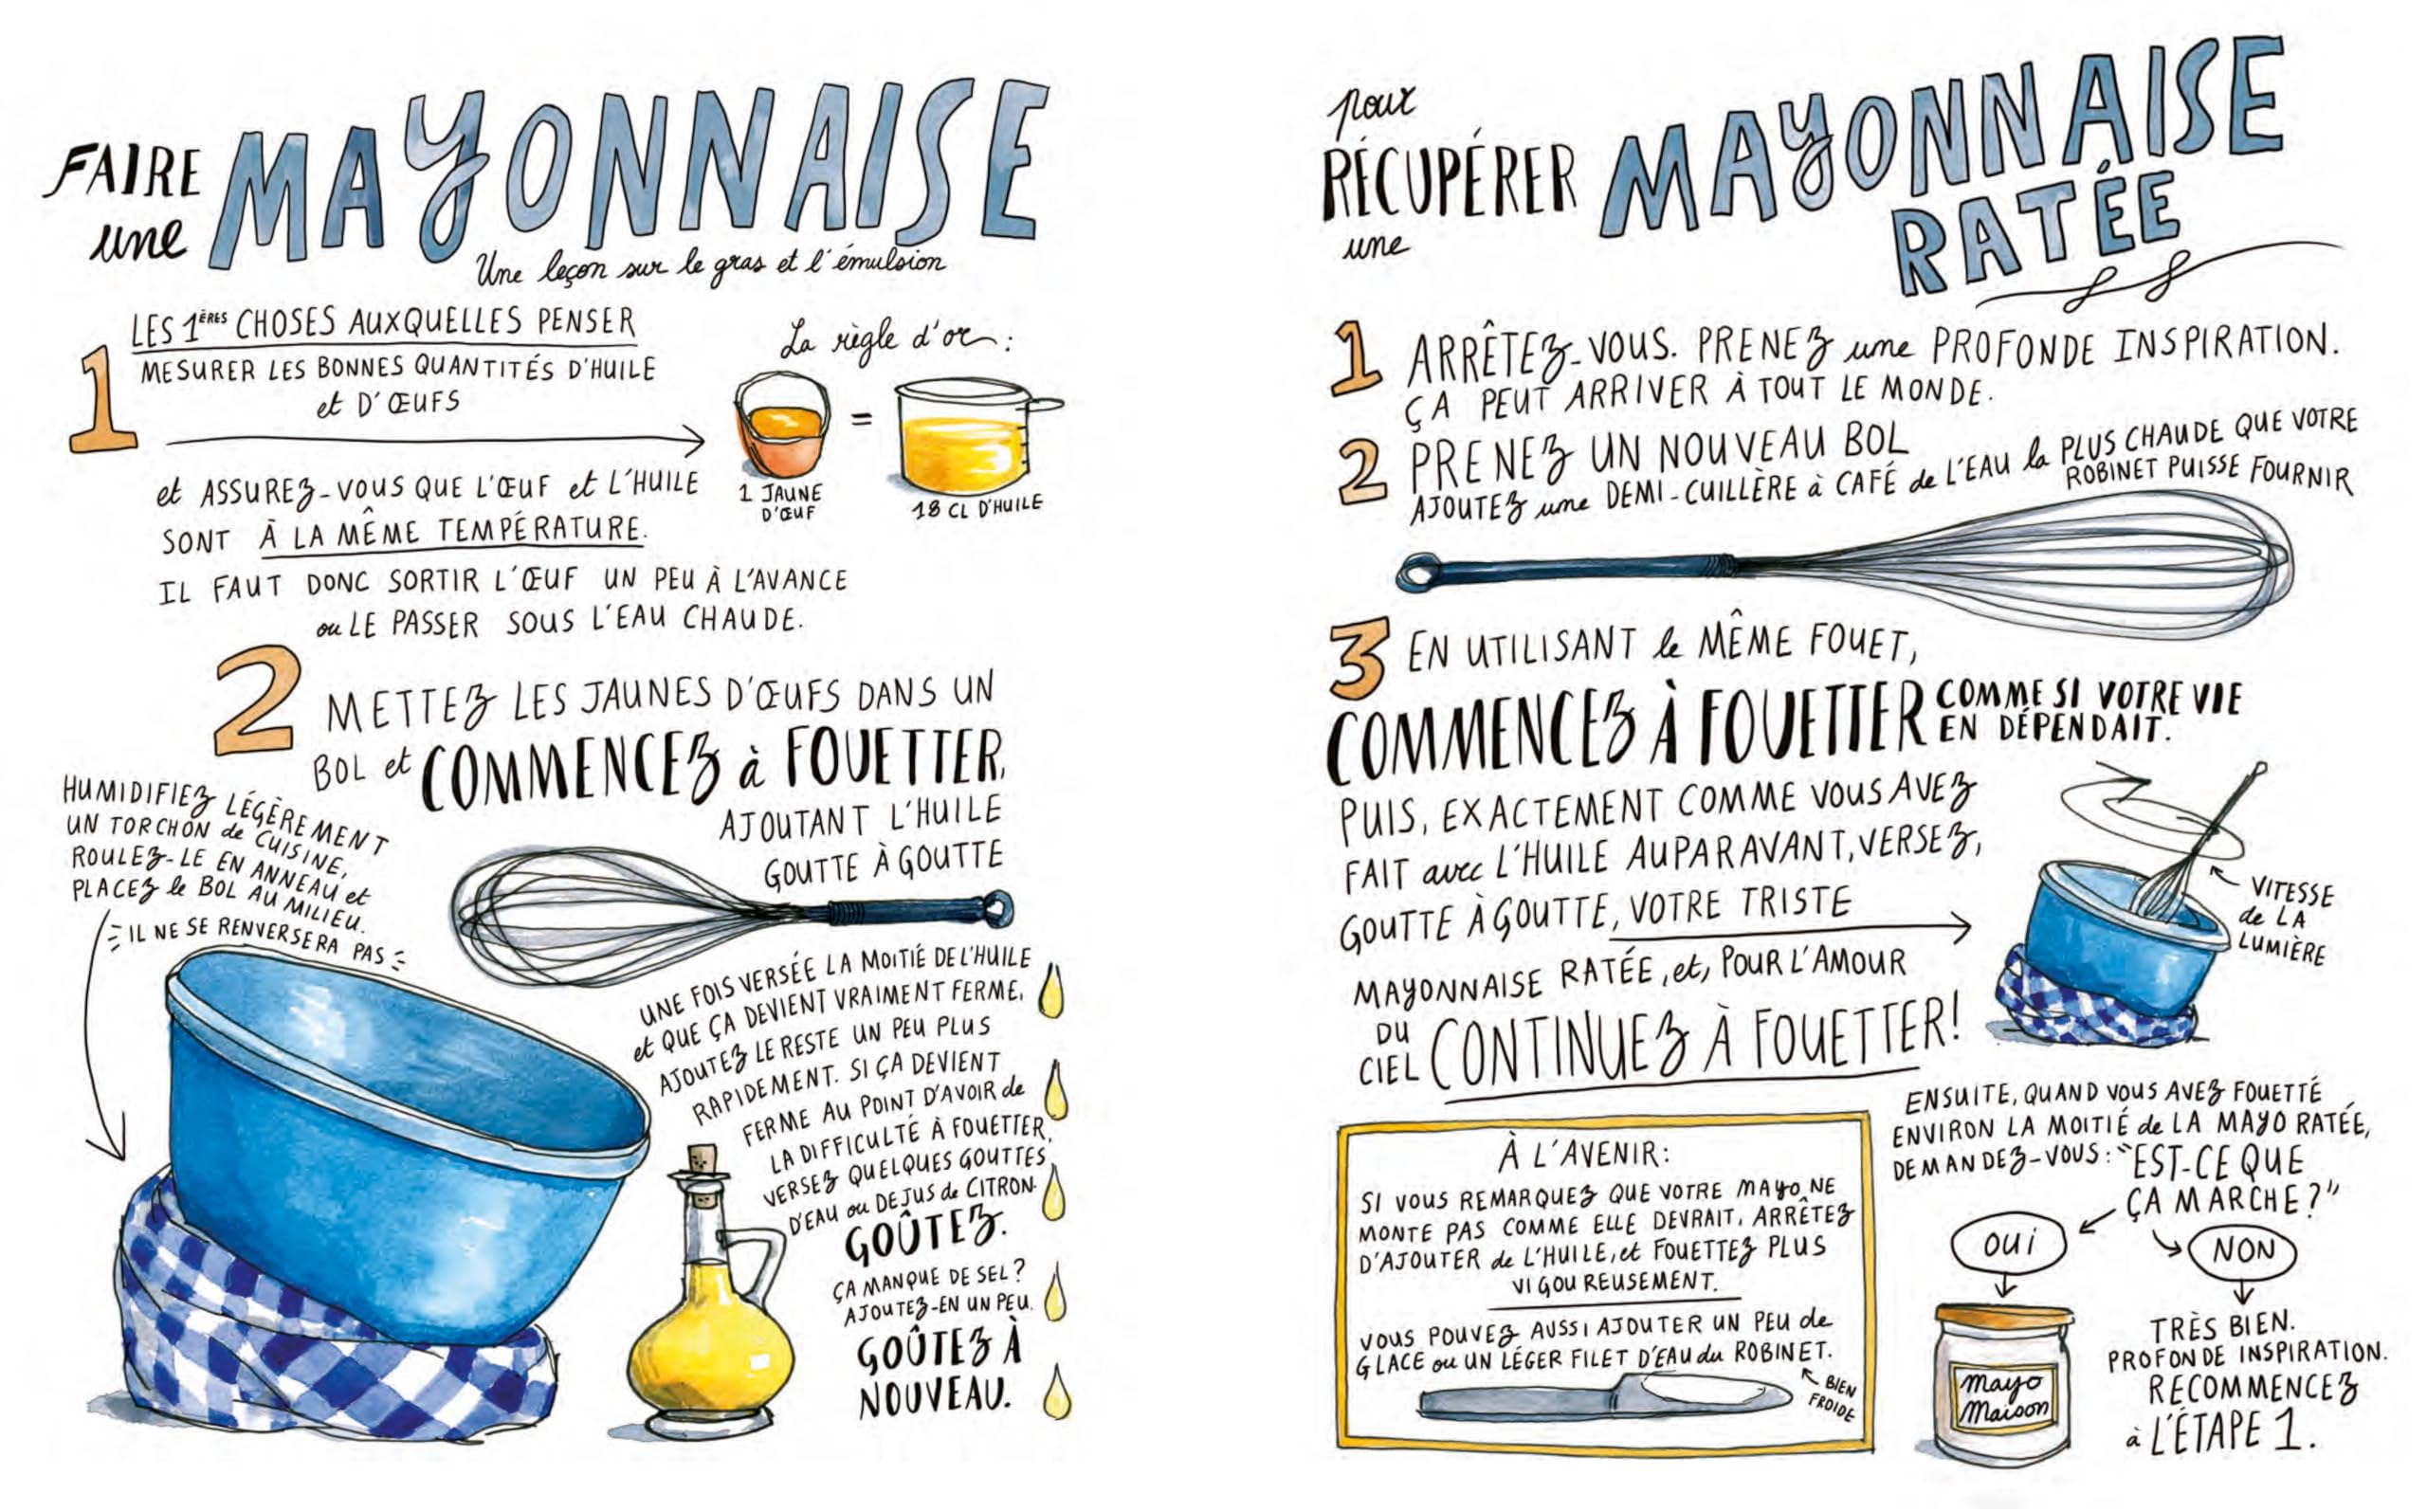 FAIRE
une
MAYONNAISE
Une leçon sur le gras et l'émulsion
1
LES 1ÈRES CHOSES AUXQUELLES PENSER
MESURER LES BONNES QUANTITÉS D'HUILE
et D'ŒUFS
La règle d'or :
=
1 JAUNE
D'ŒUF
18 CL D'HUILE
et ASSUREZ-VOUS QUE L'ŒUF et L'HUILE
SONT À LA MÊME TEMPÉRATURE.
IL FAUT DONC SORTIR L'ŒUF UN PEU À L'AVANCE
ou LE PASSER SOUS L'EAU CHAUDE.
2
METTEZ LES JAUNES D'ŒUFS DANS UN
BOL et COMMENCEZ à FOUETTER,
AJOUTANT L'HUILE
GOUTTE À GOUTTE
HUMIDIFIEZ LÉGÈREMENT
UN TORCHON de CUISINE,
ROULEZ-LE EN ANNEAU et
PLACEZ le BOL AU MILIEU.
IL NE SE RENVERSERA PAS
UNE FOIS VERSÉE LA MOITIÉ DE L'HUILE
et QUE ÇA DEVIENT VRAIMENT FERME,
AJOUTEZ LE RESTE UN PEU PLUS
RAPIDEMENT. SI ÇA DEVIENT
FERME AU POINT D'AVOIR de
LA DIFFICULTÉ À FOUETTER,
VERSEZ QUELQUES GOUTTES
D'EAU ou DE JUS de CITRON.
GOÛTEZ.
ÇA MANQUE DE SEL ?
AJOUTEZ-EN UN PEU.
GOÛTEZ À
NOUVEAU.
pour
RÉCUPÉRER
une
MAYONNAISE
RATÉE
1 ARRÊTEZ-VOUS. PRENEZ une PROFONDE INSPIRATION.
ÇA PEUT ARRIVER À TOUT LE MONDE.
2 PRENEZ UN NOUVEAU BOL
AJOUTEZ une DEMI-CUILLÈRE à CAFÉ de L'EAU la PLUS CHAUDE QUE VOTRE
ROBINET PUISSE FOURNIR
3 EN UTILISANT le MÊME FOUET,
COMMENCEZ À FOUETTER COMME SI VOTRE VIE
EN DÉPENDAIT.
PUIS, EXACTEMENT COMME VOUS AVEZ
FAIT avec L'HUILE AUPARAVANT, VERSEZ,
GOUTTE À GOUTTE, VOTRE TRISTE
MAYONNAISE RATÉE, et, POUR L'AMOUR
DU
CIEL CONTINUEZ À FOUETTER!
VITESSE
de LA
LUMIÈRE
À L'AVENIR:
SI VOUS REMARQUEZ QUE VOTRE MAYO NE
MONTE PAS COMME ELLE DEVRAIT, ARRÊTEZ
D'AJOUTER de L'HUILE, et FOUETTEZ PLUS
VIGOUREUSEMENT.
VOUS POUVEZ AUSSI AJOUTER UN PEU de
GLACE ou UN LÉGER FILET D'EAU du ROBINET.
BIEN
FROIDE
ENSUITE, QUAND VOUS AVEZ FOUETTÉ
ENVIRON LA MOITIÉ de LA MAYO RATÉE,
DEMANDEZ-VOUS : "EST-CE QUE
ÇA MARCHE ?"
OUI
NON
mayo
maison
TRÈS BIEN.
PROFONDE INSPIRATION.
RECOMMENCEZ
à L'ÉTAPE 1.